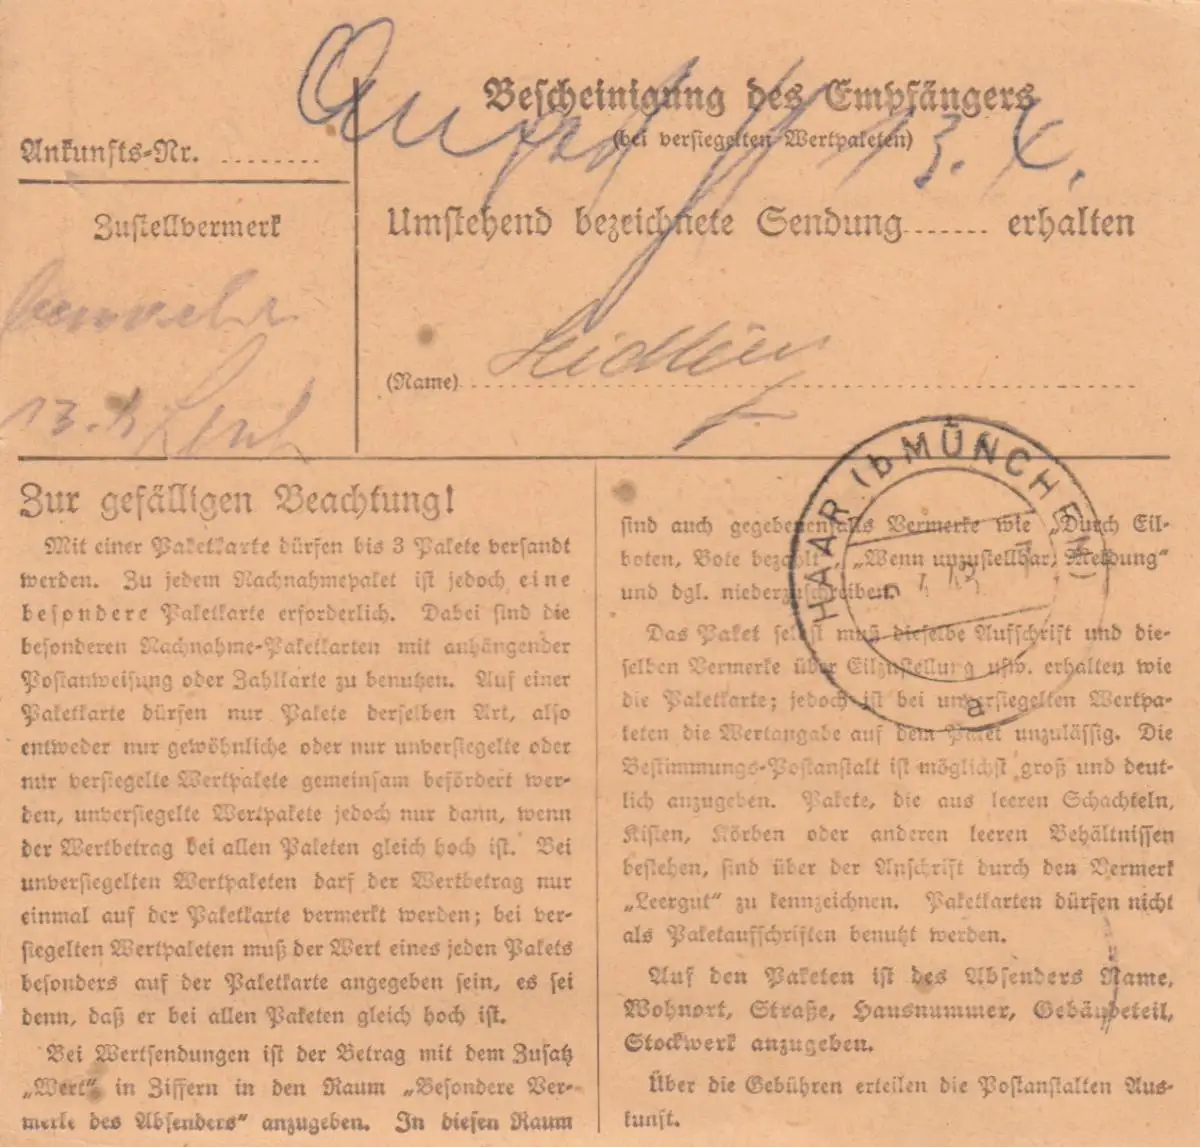 Bescheinigung des Empfängers
(bei versiegelten Wertpaketen)
Ankunfts-Nr. ........
13. 4.
Zustellvermerk
Umstehend bezeichnete Sendung....... erhalten
(Name)
13. 4.
HAAR (b MÜNCHEN)
a
Zur gefälligen Beachtung!
Mit einer Paketkarte dürfen bis 3 Pakete versandt
werden. Zu jedem Nachnahmepaket ist jedoch eine
besondere Paketkarte erforderlich. Dabei sind die
besonderen Nachnahme-Paketkarten mit anhängender
Postanweisung oder Zahlkarte zu benutzen. Auf einer
Paketkarte dürfen nur Pakete derselben Art, also
entweder nur gewöhnliche oder nur unversiegelte oder
nur versiegelte Wertpakete gemeinsam befördert wer-
den, unversiegelte Wertpakete jedoch nur dann, wenn
der Wertbetrag bei allen Paketen gleich hoch ist. Bei
unversiegelten Wertpaketen darf der Wertbetrag nur
einmal auf der Paketkarte vermerkt werden; bei ver-
siegelten Wertpaketen muß der Wert eines jeden Pakets
besonders auf der Paketkarte angegeben sein, es sei
denn, daß er bei allen Paketen gleich hoch ist.
Bei Wertsendungen ist der Betrag mit dem Zusatz
„Wert" in Ziffern in den Raum „Besondere Ver-
merke des Absenders" anzugeben. In diesen Raum
sind auch gegebenenfalls Vermerke wie „Durch Eil-
boten, Bote bezahlt", „Wenn unzustellbar, Meldung"
und dgl. niederzuschreiben.
Das Paket selbst muß dieselbe Aufschrift und die-
selben Vermerke über Eilzustellung usw. erhalten, wie
die Paketkarte; jedoch ist bei unversiegelten Wertpa-
keten die Wertangabe auf dem Paket unzulässig. Die
Bestimmungs-Postanstalt ist möglichst groß und deut-
lich anzugeben. Pakete, die aus leeren Schachteln,
Kisten, Körben oder anderen leeren Behältnissen
bestehen, sind über der Anschrift durch den Vermerk
„Leergut" zu kennzeichnen. Paketkarten dürfen nicht
als Paketaufschriften benutzt werden.
Auf den Paketen ist des Absenders Name,
Wohnort, Straße, Hausnummer, Gebäudeteil,
Stockwerk anzugeben.
Über die Gebühren erteilen die Postanstalten Aus-
kunft.